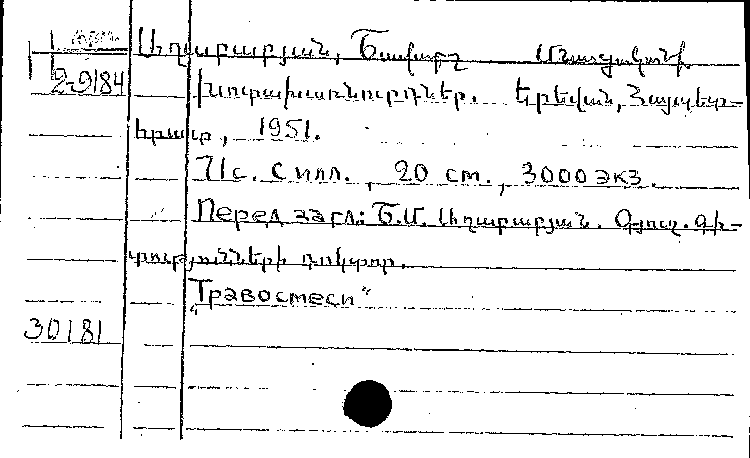 Աղաբաբյան, Մնացականի
2-9184 Խոտախառնուրդներ. Երեվան, Հայպետ-
հրատ, 1951.
71 с. с илл., 20 см., 3000 экз.
Перед загл.: Բ.Մ. Աղաբաբյան. Գյուղ. գի-
տությունների դոկտոր.
„Травосмеси“
30181